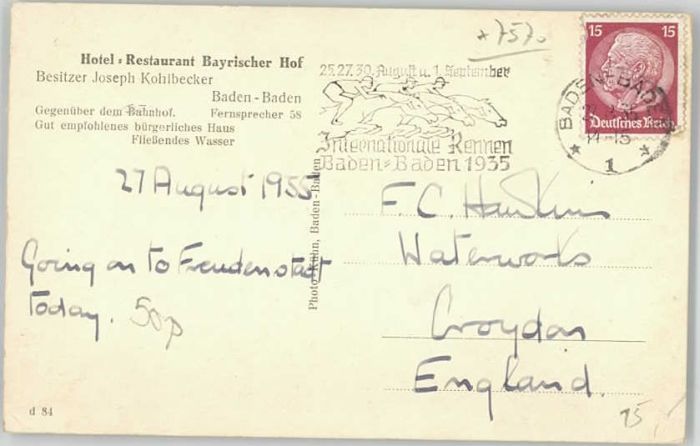 Hotel-Restaurant Bayrischer Hof
Besitzer Joseph Kohlbecker
Baden-Baden
Gegenüber dem Bahnhof. Fernsprecher 58
Gut empfohlenes bürgerliches Haus
Fließendes Wasser
27 August 1935
Going on to Freudenstadt
today. 50p
d 84
Photo-Kühn, Baden-Baden
+7570
25.27.30. August u. 1. September
Internationale Rennen
Baden-Baden 1935
15 15
Deutsches Reich
BADEN-BADEN
14-15
* 1 *
F.C. Hawkins
Waterworks
Croydon
England.
15,-